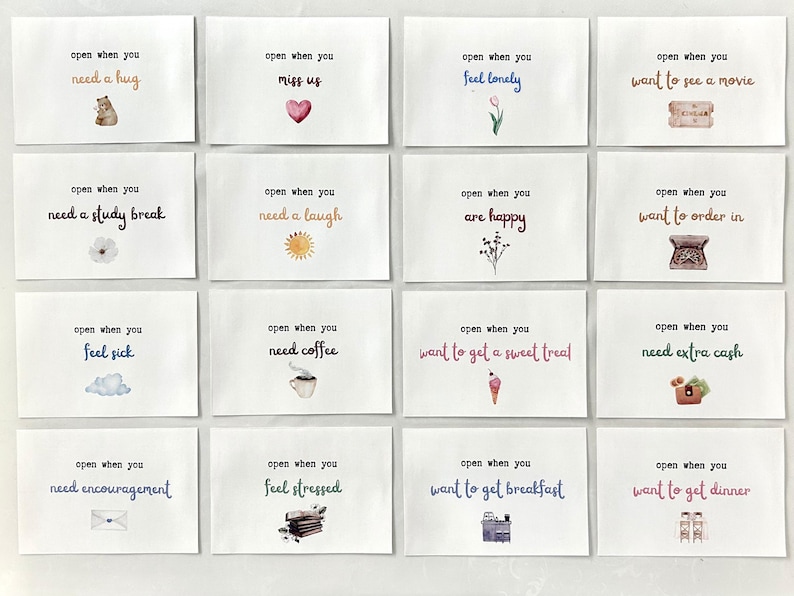 open when you
need a hug
open when you
miss us
open when you
feel lonely
open when you
want to see a movie
CINEMA
open when you
need a study break
open when you
need a laugh
open when you
are happy
open when you
want to order in
open when you
feel sick
open when you
need coffee
open when you
want to get a sweet treat
open when you
need extra cash
open when you
need encouragement
open when you
feel stressed
open when you
want to get breakfast
open when you
want to get dinner